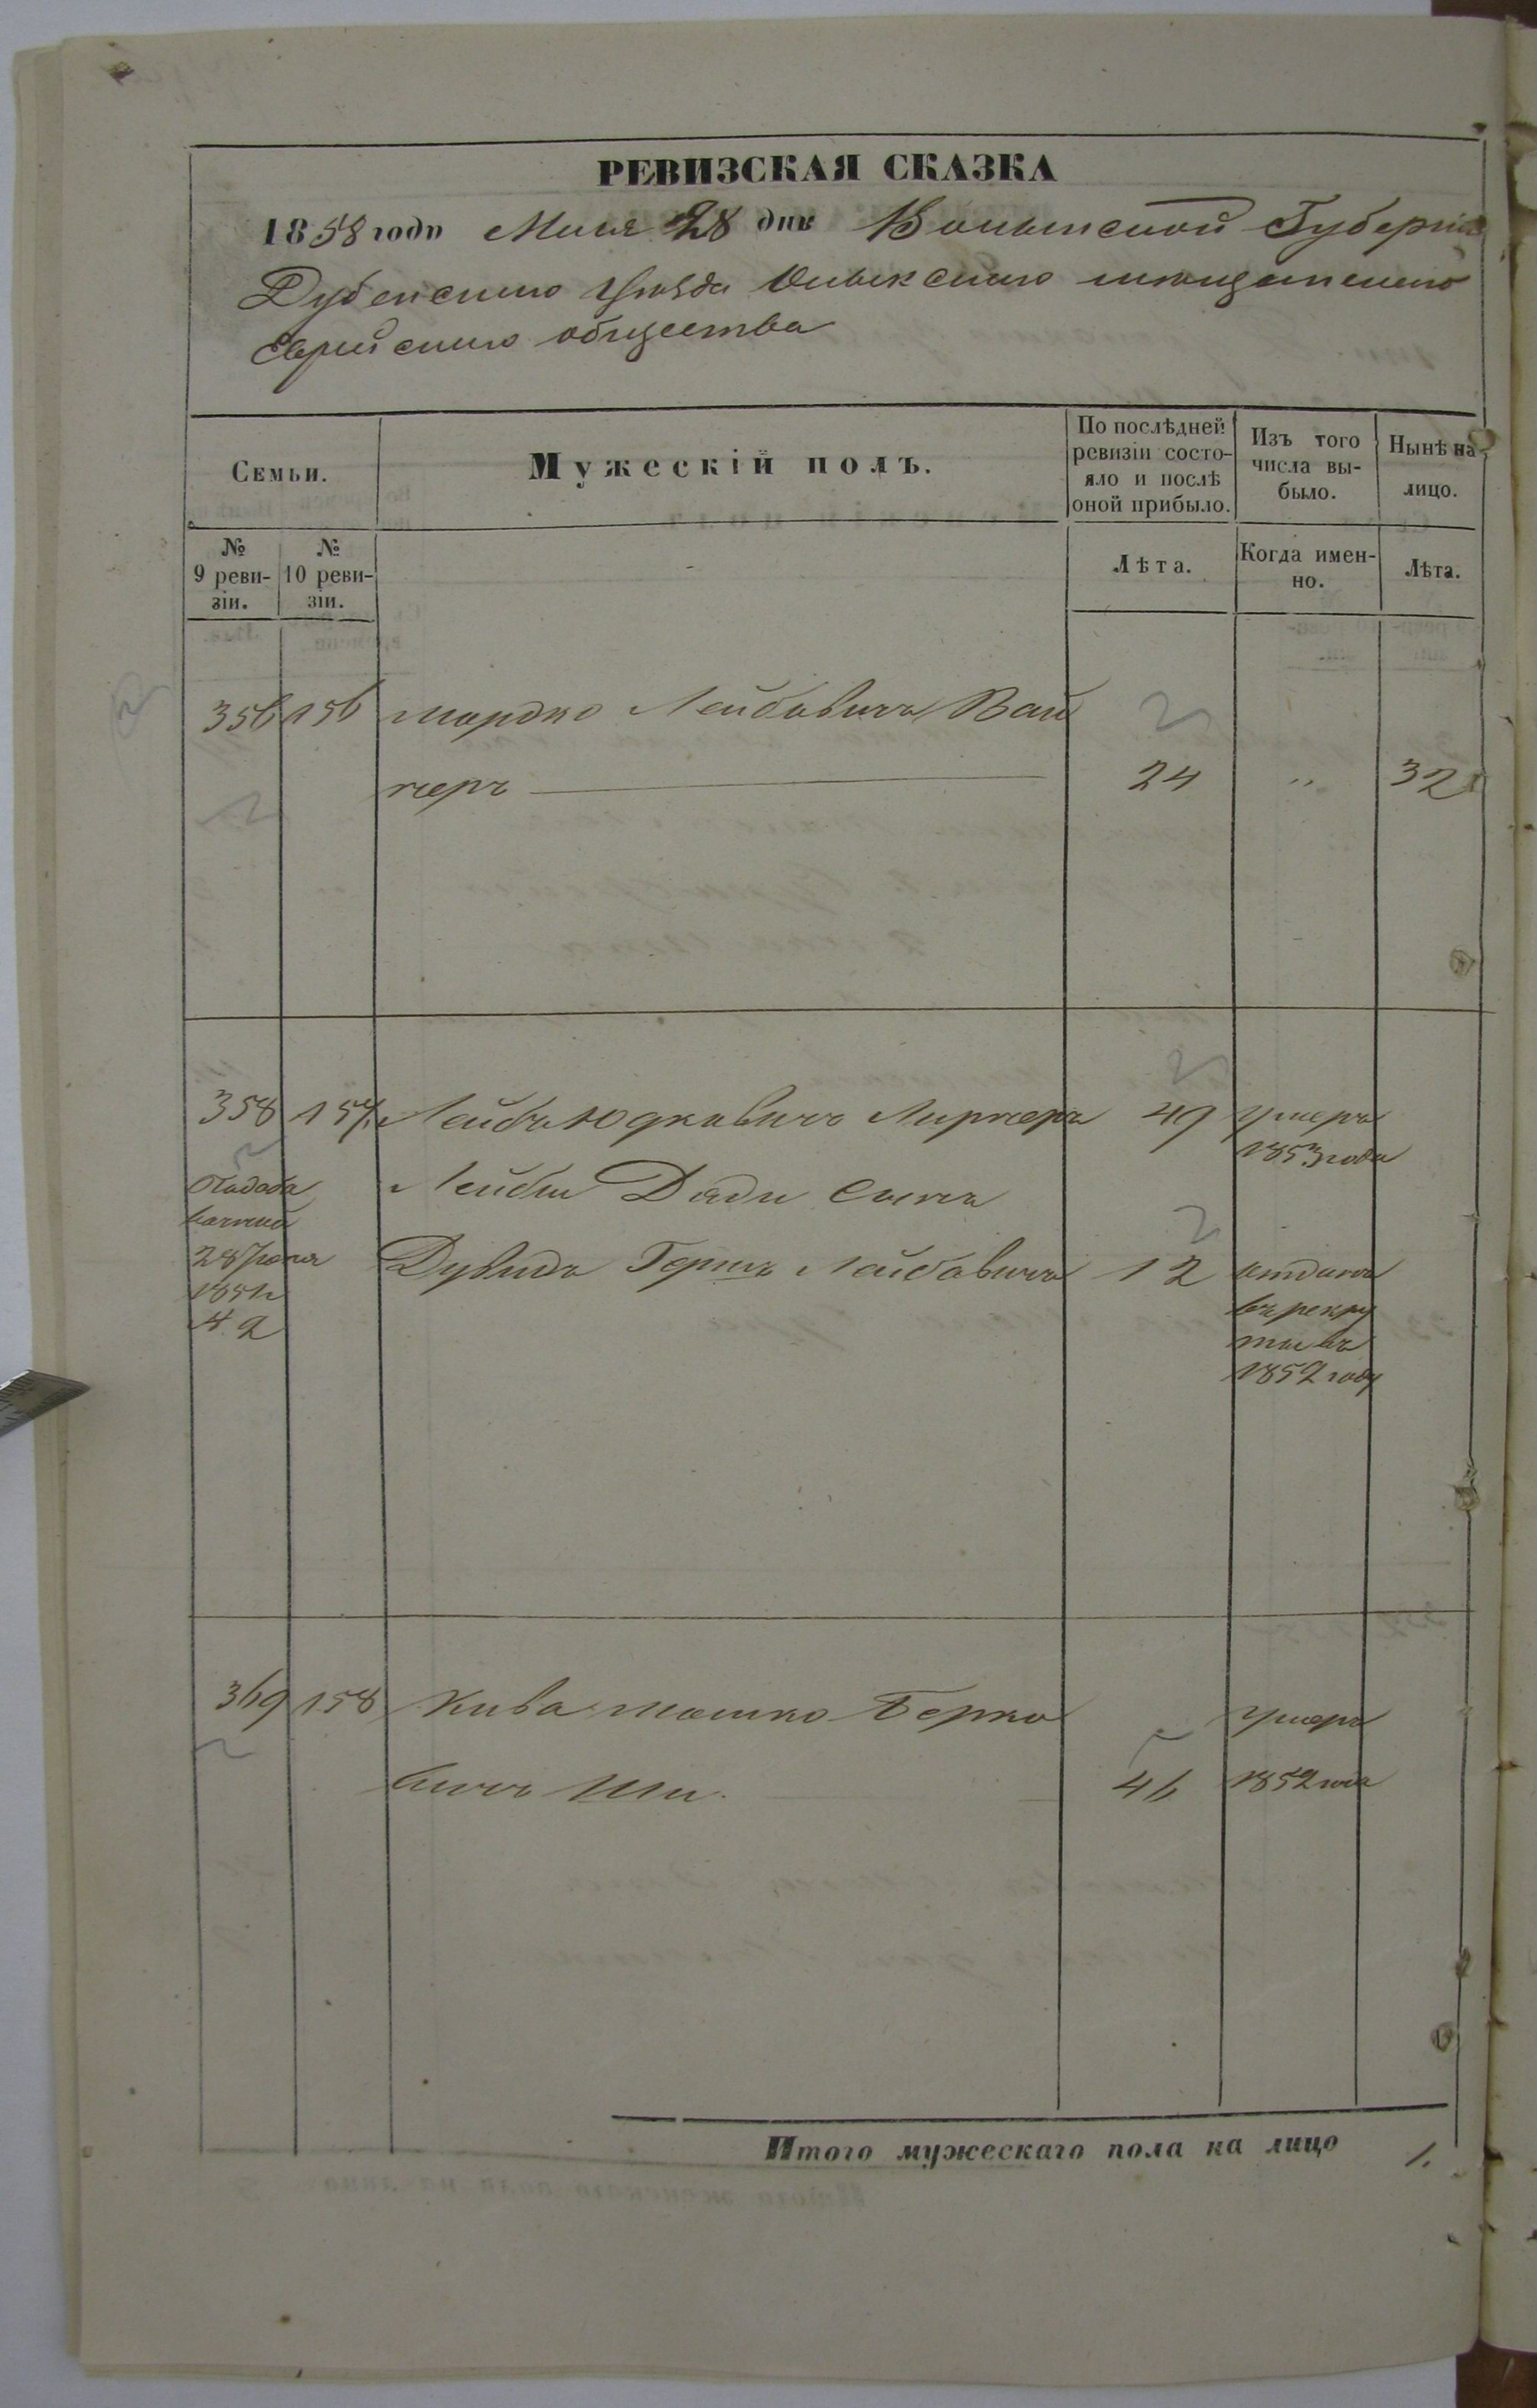 РЕВИЗСКАЯ СКАЗКА
1858 года Мая 28 дня Волынской Губерніи
Дубенскаго Уѣзда Олыкскаго мѣщанскаго
Еврейскаго общества
Семьи.
Мужескій полъ.
По послѣдней ревизіи состо-
яло и послѣ
оной прибыло.
Изъ того
числа вы-
было.
Нынѣ на
лицо.
№
9 реви-
зіи.
№
10 реви-
зіи.
Лѣта.
Когда имен-
но.
Лѣта.
356 156 Мордко Лейбовичъ Вай
неръ 24 " 32
358 157 Лейба Юдковичъ Лирнеръ 49 умеръ
1853 года
Лейбы Сынъ
Дувидъ Гершъ Лейбовичъ 12 отданъ
въ рекру
ты въ
1852 году
28
369 158 Кива Мошко Берко умеръ
вичъ 46 1852 года
Итого мужескаго пола на лицо 1.